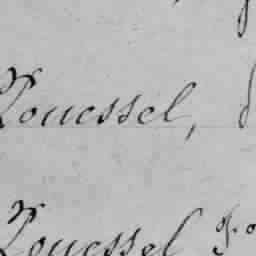 Rouessel,
Rouessel